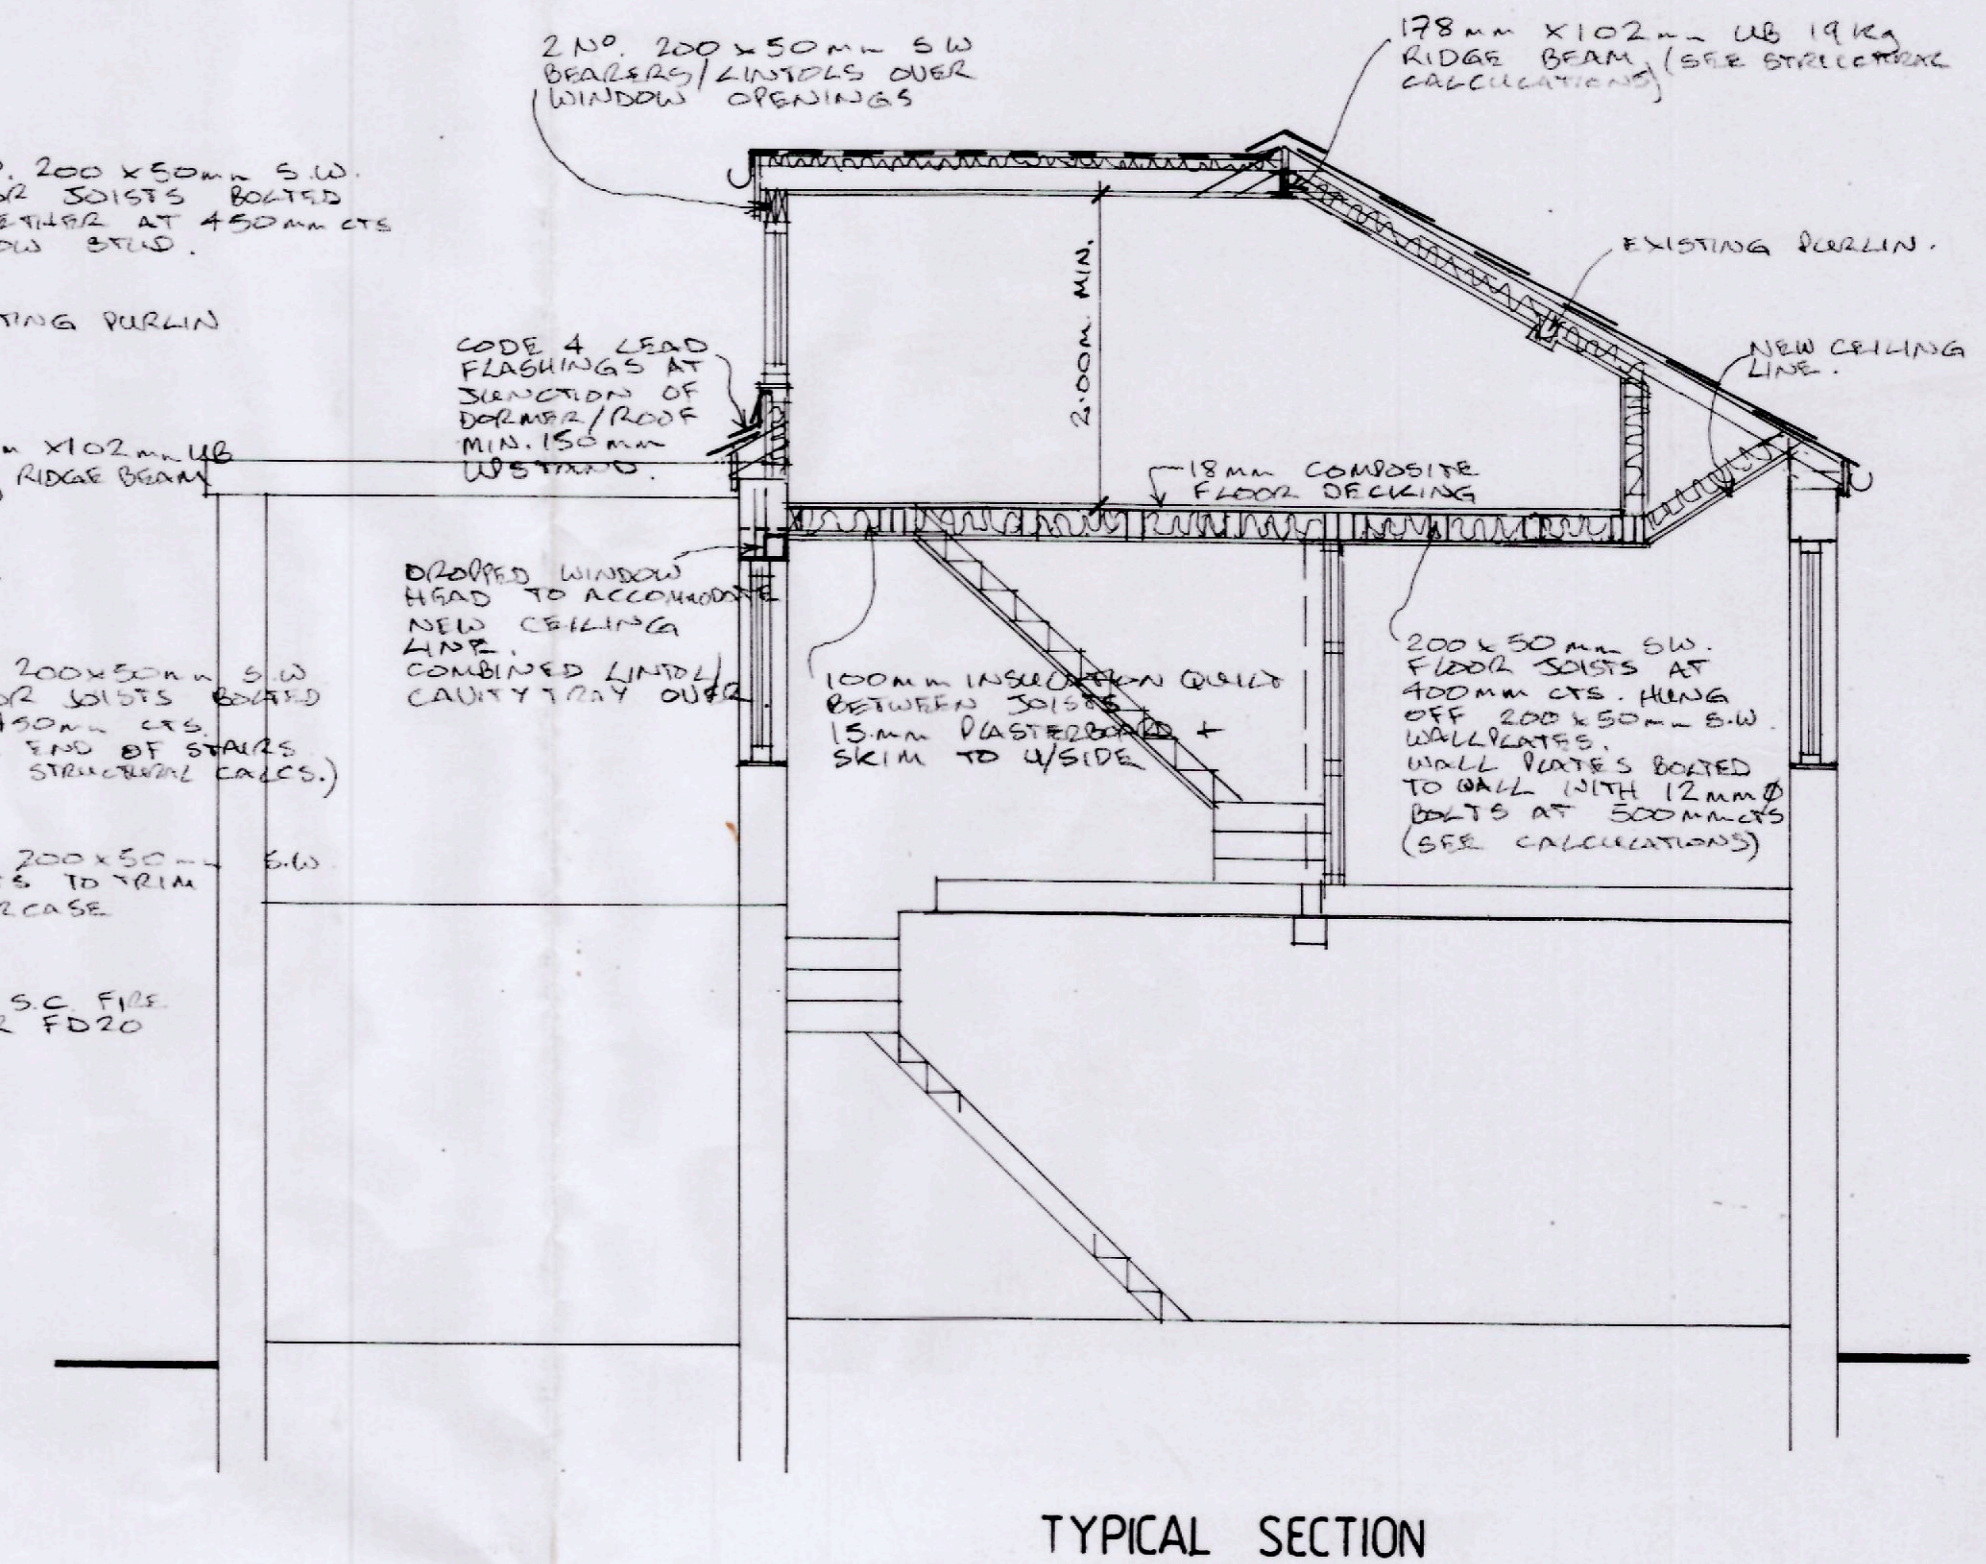 2 Nº. 200 x 50mm SW
BEARERS/LINTOLS OVER
WINDOW OPENINGS
178mm X102mm UB 19kg
RIDGE BEAM (SEE STRUCTURAL
CALCULATIONS)
200 x 50mm S.W.
JOISTS BOLTED
AT 450mm CTS
STUD.
EXISTING PURLIN.
PURLIN
CODE 4 LEAD
FLASHINGS AT
JUNCTION OF
DORMER/ROOF
MIN. 150mm
UPSTAND.
2.00M. MIN.
NEW CEILING
LINE.
X102mm UB
RIDGE BEAM
18mm COMPOSITE
FLOOR DECKING
DROPPED WINDOW
HEAD TO ACCOMMODATE
NEW CEILING
LINE.
COMBINED LINTOL/
CAVITY TRAY OVER
200x50mm S.W
JOISTS BOLTED
450mm CTS.
END OF STAIRS
STRUCTURAL CALCS.)
100mm INSULATION QUILT
BETWEEN JOISTS
15mm PLASTERBOARD +
SKIM TO U/SIDE
200 x 50mm SW.
FLOOR JOISTS AT
400mm CTS. HUNG
OFF 200 x 50mm S.W
WALLPLATES.
WALL PLATES BOLTED
TO WALL WITH 12mm Ø
BOLTS AT 500mm CTS
(SEE CALCULATIONS)
200x50mm S.W
TO TRIM
S.C. FIRE
FD20
TYPICAL SECTION